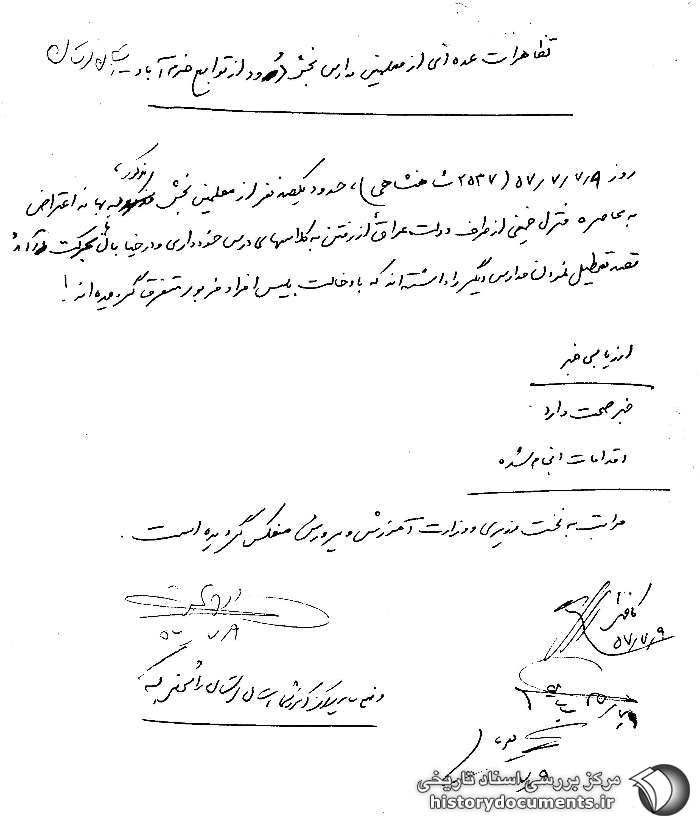 تظاهرات عده‌ای از معلمین مدارس بخش درود از توابع خرم آباد
روز ۵۷/۷/۷/۹ (۲۵۳۷ شاهنشاهی)، حدود یکصد نفر از معلمین بخش مذکور، به بهانه اعتراض
به محاصره منزل خمینی از طرف دولت عراق از رفتن به کلاسهای درس خودداری و در خیابانها بحرکت درآمده
قصد تعطیل نمودن مدارس دیگر را داشته‌اند که با دخالت پلیس افراد مزبور متفرق گردیده‌اند!
ارزیابی خبر
خبر صحت دارد
اقدامات انجام شده
مراتب به نخست وزیری و وزارت آموزش و پرورش منعکس گردیده است.
۵۷/۷/۹
مرکز بررسی اسناد تاریخی
historydocuments.ir